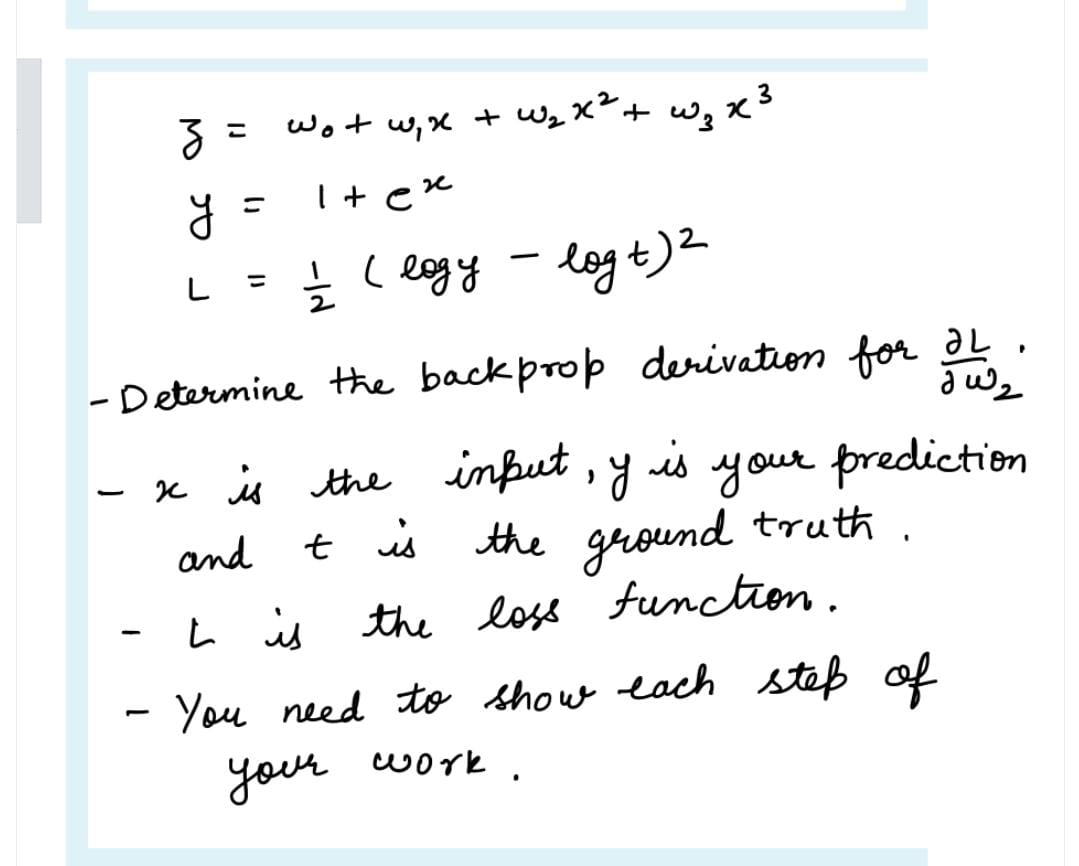 z = w₀ + w₁x + w₂x² + w₃x³
y = 1 + eˣ
L = ½ (log y − log t)²
- Determine the backprop derivation for ∂L/∂w₂.
- x is the input, y is your prediction
and t is the ground truth.
- L is the loss function.
- You need to show each step of
your work.